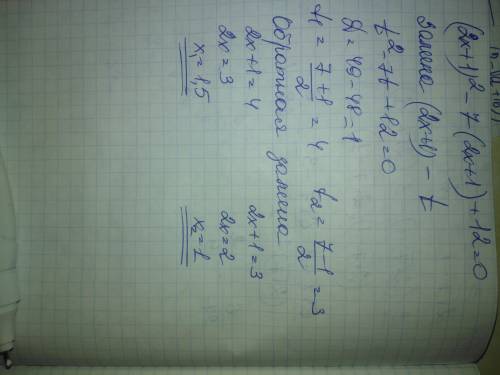 (2x+1)² - 7(2x+1) + 12 = 0
Замена (2x+1) - t
t² - 7t + 12 = 0
D = 49 - 48 = 1
t₁ = (7+1)/2 = 4 t₂ = (7-1)/2 = 3
Обратная замена
2x+1 = 4 2x+1 = 3
2x = 3 2x = 2
x₁ = 1,5 x₂ = 1